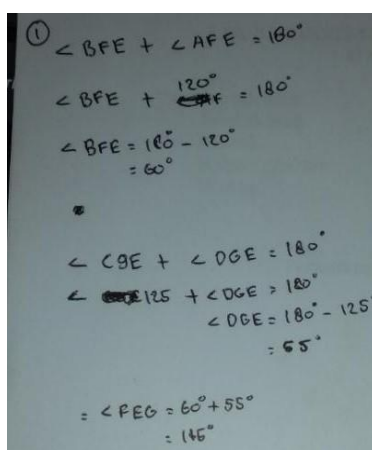 ①
< BFE + < AFE = 180°
< BFE + 120° = 180°
< BFE = 180° - 120°
= 60°
< CgE + < DGE = 180°
< 125 + < DGE = 180°
< DGE = 180° - 125
= 55°
= < FEG = 60° + 55°
= 115°